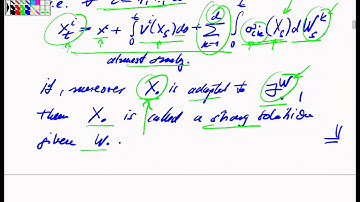 i.e.
X_t^i = x + ∫_0^t v^i(X_s) ds + ∑_{k=1}^d ∫_0^t σ_{ik}(X_s) dW_s^k
almost surely.
If, moreover X. is adapted to F^W,
then X. is called a strong solution
given W.